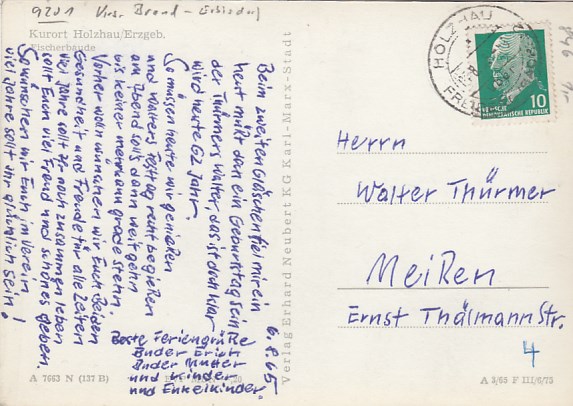 9201 Krs. Brand-Erbisdorf
Kurort Holzhau/Erzgeb.
Fischerbaude
6.8.65
Beim zweiten Gläschen fiel mir ein
heut müßt den ein Geburtstag sein
der Thürmers Walter, das ist doch klar
wird heute 62 Jahr.
So müssen heute wir genießen
und Walters Festtag recht begießen
am Abend solls dann weit gehn
bis keiner mermann grade stehn
Vorher wolln wünschen wir Euch beiden
Gesundheit und Freude für alle Zeiten
viel Jahre sollt Ihr noch zusammen leben
sollt Euch viel Freud und schönes geben.
So wünschen wir Euch im Verein
viel Jahre sollt ihr glücklich sein!
Beste Feriengrüße
Bruder Erich
Bruder Mutter
und Kinder
und Enkelkinder
Verlag Erhard Neubert KG Karl-Marx-Stadt
A 7663 N (137 B)
HOLZHAU
10
DEUTSCHE DEMOKRATISCHE REPUBLIK
Herrn
Walter Thürmer
Meißen
Ernst Thälmann Str.
4
A 3/65 F III/6/75